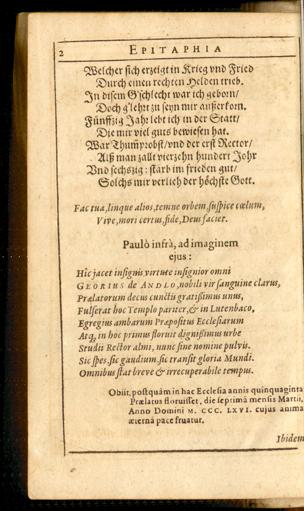 2 EPITAPHIA
Welcher sich erzeigt in Krieg vnd Fried
Durch einen rechten Helden trieb.
In disem G'schlecht war ich geborn/
Doch g'lehrt zu seyn mir außerkorn.
Fünffzig Jahr lebt ich in der Statt/
Die mir viel guts bewiesen hat.
War Thumprobst/ vnd der erst Rector/
Alß man zallt vierzehn hundert Johr
Vnd sechszig: starb im frieden gut/
Solchs mir verlich der höchste Gott.
Fac tua, linque alios, temne orbem, suspice cœlum,
Vive, mori certus, fide, Deus faciet.
Paulò infrà, ad imaginem
ejus:
Hic jacet insignis virtute insignior omni
GEORIUS de ANDLO, nobili vir sanguine clarus,
Prælatorum decus cunctis gratissimus unus,
Fulserat hoc Templo pariter, & in Lutenbaco,
Egregius ambarum Præpositus Ecclesiarum
Atq, in hoc primus floruit dignißimus urbe
Studii Rector almi, nunc sine nomine pulvis.
Sic spes, sic gaudium, sic transit gloria Mundi.
Omnibus stat breve & irrecuperabile tempus.
Obiit, postquám in hac Ecclesia annis quinquaginta
Prælatus floruisset, die septimâ mensis Martii,
Anno Domini M. CCC. LXVI. cujus anima
æternâ pace fruatur.
Ibidem